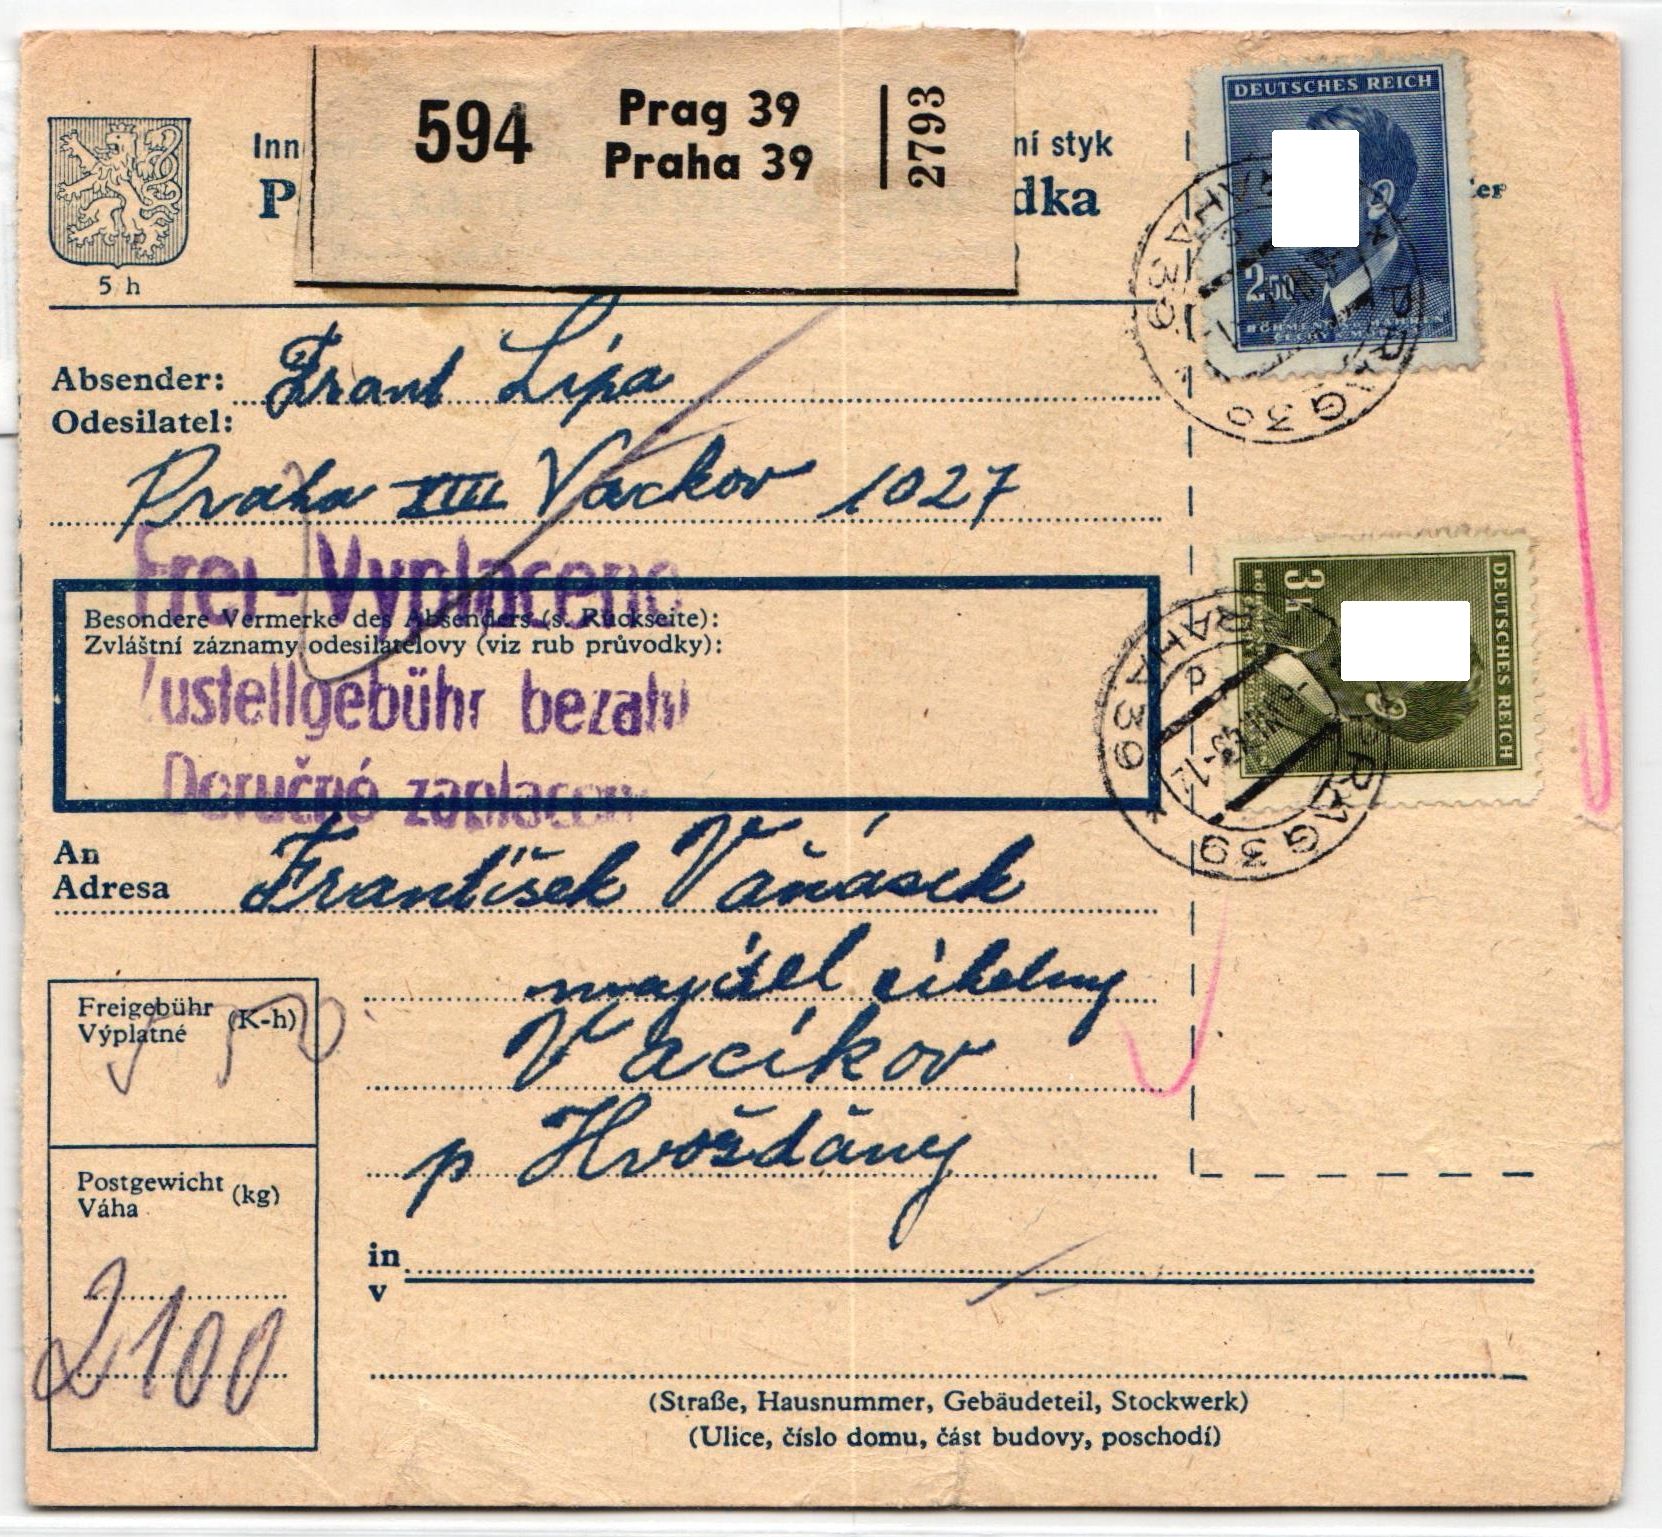 594
Prag 39
Praha 39
2793
Inn
ní styk
P
dka
5 h
DEUTSCHES REICH
2.50
BÖHMEN
PRAHA 39
PRAG 39
Absender:
Odesilatel:
Frant Lípa
Praha XIII Vackov 1027
Frei - Vyplaceno
Besondere Vermerke des Absenders (s. Rückseite):
Zvláštní záznamy odesilatelovy (viz rub průvodky):
Zustellgebühr bezahlt
Doručné zaplaceno
DEUTSCHES REICH
3 h
PRAHA 39
PRAG 39
An
Adresa
František Váňásek
majitel cihelny
Vacíkov
p Hvožďány
Freigebühr
Výplatné
(K-h)
5 50
Postgewicht
Váha
(kg)
2100
in
v
(Straße, Hausnummer, Gebäudeteil, Stockwerk)
(Ulice, číslo domu, část budovy, poschodí)